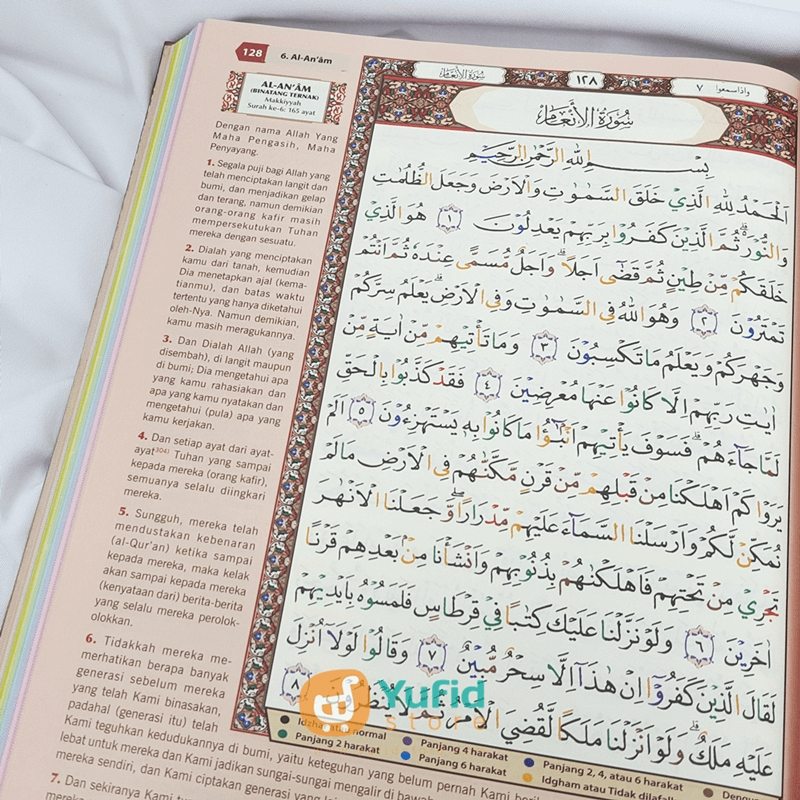 128
6. Al-An'âm
AL-AN'ÂM
(BINATANG TERNAK)
Makkiyyah
Surah ke-6: 165 ayat
Dengan nama Allah Yang
Maha Pengasih, Maha
Penyayang.
1. Segala puji bagi Allah yang
telah menciptakan langit dan
bumi, dan menjadikan gelap
dan terang, namun demikian
orang-orang kafir masih
mempersekutukan Tuhan
mereka dengan sesuatu.
2. Dialah yang menciptakan
kamu dari tanah, kemudian
Dia menetapkan ajal (kema-
tianmu), dan batas waktu
tertentu yang hanya diketahui
oleh-Nya. Namun demikian,
kamu masih meragukannya.
3. Dan Dialah Allah (yang
disembah), di langit maupun
di bumi; Dia mengetahui apa
yang kamu rahasiakan dan
apa yang kamu nyatakan dan
mengetahui (pula) apa yang
kamu kerjakan.
4. Dan setiap ayat dari ayat-
ayat304) Tuhan yang sampai
kepada mereka (orang kafir),
semuanya selalu diingkari
mereka.
5. Sungguh, mereka telah
mendustakan kebenaran
(al-Qur'an) ketika sampai
kepada mereka, maka kelak
akan sampai kepada mereka
(kenyataan dari) berita-berita
yang selalu mereka perolok-
olokkan.
6. Tidakkah mereka me-
merhatikan berapa banyak
generasi sebelum mereka
yang telah Kami binasakan,
padahal (generasi itu) telah
Kami teguhkan kedudukannya di bumi, yaitu keteguhan yang belum pernah Kami beri
lebat untuk mereka dan Kami jadikan sungai-sungai mengalir di bawah
mereka sendiri, dan Kami ciptakan generasi yang
7. Dan sekiranya Kami
سُورَةُ الْأَنْعَامِ
١٢٨
وَاِذَا سَمِعُوْا ٧
سُورَةُ الْأَنْعَامِ
بِسْمِ اللهِ الرَّحْمٰنِ الرَّحِيْمِ
اَلْحَمْدُ لِلّٰهِ الَّذِيْ خَلَقَ السَّمٰوٰتِ وَالْاَرْضَ وَجَعَلَ الظُّلُمٰتِ
وَالنُّوْرَ ۗ ثُمَّ الَّذِيْنَ كَفَرُوْا بِرَبِّهِمْ يَعْدِلُوْنَ ١ هُوَ الَّذِيْ
خَلَقَكُمْ مِّنْ طِيْنٍ ثُمَّ قَضٰٓى اَجَلًا ۗ وَاَجَلٌ مُّسَمًّى عِنْدَهٗ ثُمَّ اَنْتُمْ
تَمْتَرُوْنَ ٢ وَهُوَ اللهُ فِى السَّمٰوٰتِ وَفِى الْاَرْضِ ۗ يَعْلَمُ سِرَّكُمْ
وَجَهْرَكُمْ وَيَعْلَمُ مَا تَكْسِبُوْنَ ٣ وَمَا تَأْتِيْهِمْ مِّنْ اٰيَةٍ مِّنْ
اٰيٰتِ رَبِّهِمْ اِلَّا كَانُوْا عَنْهَا مُعْرِضِيْنَ ٤ فَقَدْ كَذَّبُوْا بِالْحَقِّ
لَمَّا جَاۤءَهُمْ ۗ فَسَوْفَ يَأْتِيْهِمْ اَنْۢبٰۤؤُا مَا كَانُوْا بِهٖ يَسْتَهْزِءُوْنَ ٥ اَلَمْ
يَرَوْا كَمْ اَهْلَكْنَا مِنْ قَبْلِهِمْ مِّنْ قَرْنٍ مَّكَّنّٰهُمْ فِى الْاَرْضِ مَا لَمْ
نُمَكِّنْ لَّكُمْ وَاَرْسَلْنَا السَّمَاۤءَ عَلَيْهِمْ مِّدْرَارًا ۖ وَّجَعَلْنَا الْاَنْهٰرَ
تَجْرِيْ مِنْ تَحْتِهِمْ فَاَهْلَكْنٰهُمْ بِذُنُوْبِهِمْ وَاَنْشَأْنَا مِنْۢ بَعْدِهِمْ قَرْنًا
اٰخَرِيْنَ ٦ وَلَوْ نَزَّلْنَا عَلَيْكَ كِتٰبًا فِيْ قِرْطَاسٍ فَلَمَسُوْهُ بِاَيْدِيْهِمْ
لَقَالَ الَّذِيْنَ كَفَرُوْٓا اِنْ هٰذَآ اِلَّا سِحْرٌ مُّبِيْنٌ ٧ وَقَالُوْا لَوْلَآ اُنْزِلَ
عَلَيْهِ مَلَكٌ ۗ وَلَوْ اَنْزَلْنَا مَلَكًا لَّقُضِيَ الْاَمْرُ ثُمَّ لَا يُنْظَرُوْنَ ٨
Yufid
STORE
Panjang 2 harakat
Panjang 4 harakat
Panjang 6 harakat
Panjang 2, 4, atau 6 harakat
Idgham atau Tidak